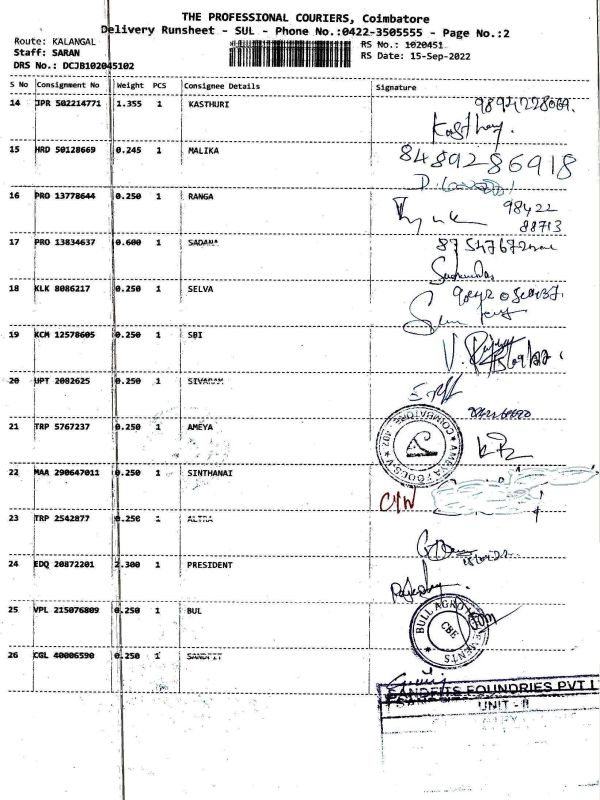 THE PROFESSIONAL COURIERS, Coimbatore
Delivery Runsheet - SUL - Phone No.:0422-3505555 - Page No.:2
Route: KALANGAL
Staff: SARAN
DRS No.: DCJB102045102
RS No.: 1020451
RS Date: 15-Sep-2022
S No Consignment No Weight PCS Consignee Details Signature
14 JPR 502214771 1.355 1 KASTHURI
15 HRD 50128669 0.245 1 MALIKA
8489286918
16 PRO 13778644 0.250 1 RANGA
98422
88713
17 PRO 13834637 0.600 1 SADANA
18 KLK 8086217 0.250 1 SELVA
19 KCM 12578605 0.250 1 SBI
20 UPT 2082625 0.250 1 SIVARAM
21 TRP 5767237 0.250 1 AMEYA
AMEYA FOODS COIMBATORE
22 MAA 290647011 0.250 1 SINTHANAI
23 TRP 2542877 0.250 1 ALTRA
24 EDQ 20872201 2.300 1 PRESIDENT
25 VPL 215076809 0.250 1 BUL
BULL AGRO
CBE
26 CGL 40006590 0.250 1 SANDFIT
SANDFITS FOUNDRIES PVT L
UNIT - II